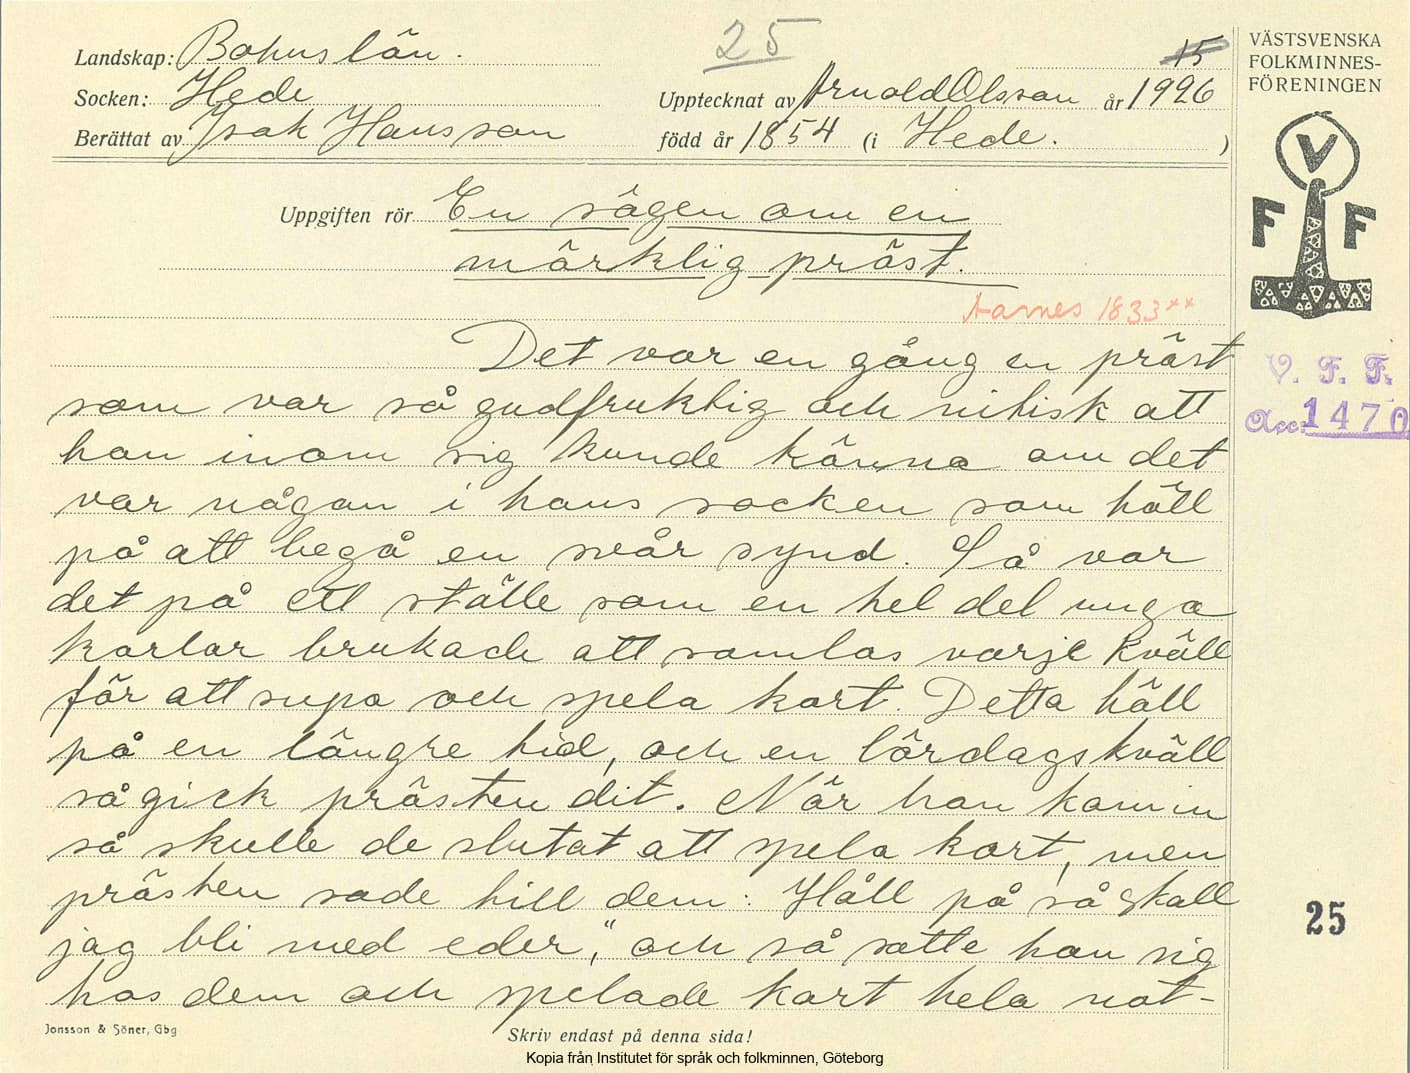 25
15
Landskap: Bohuslän.
Socken: Hede
Upptecknat av Arnold Olsson år 1926
Berättat av Isak Hansson född år 1854 (i Hede. )
VÄSTSVENSKA
FOLKMINNES-
FÖRENINGEN
V
F F
Uppgiften rör En sägen om en
märklig präst.
1833**
V. F. F.
Acc: 1470
Det var en gång en präst
som var så gudfruktig och nitisk att
han inom sig kunde känna om det
var någan i hans socken som höll
på att begå en svår synd. Så var
det på ett ställe som en hel del unga
karlar brukade att samlas varje kväll
för att supa och spela kort. Detta höll
på en längre tid, och en lördagskväll
så gick prästen dit. När han kom in
så skulle de slutat att spela kort, men
prästen sade till dem: Håll på så skall
jag bli med eder," och så satte han sig
hos dem och spelade kort hela nat-
25
Jonsson & Söner, Gbg
Skriv endast på denna sida!
Kopia från Institutet för språk och folkminnen, Göteborg